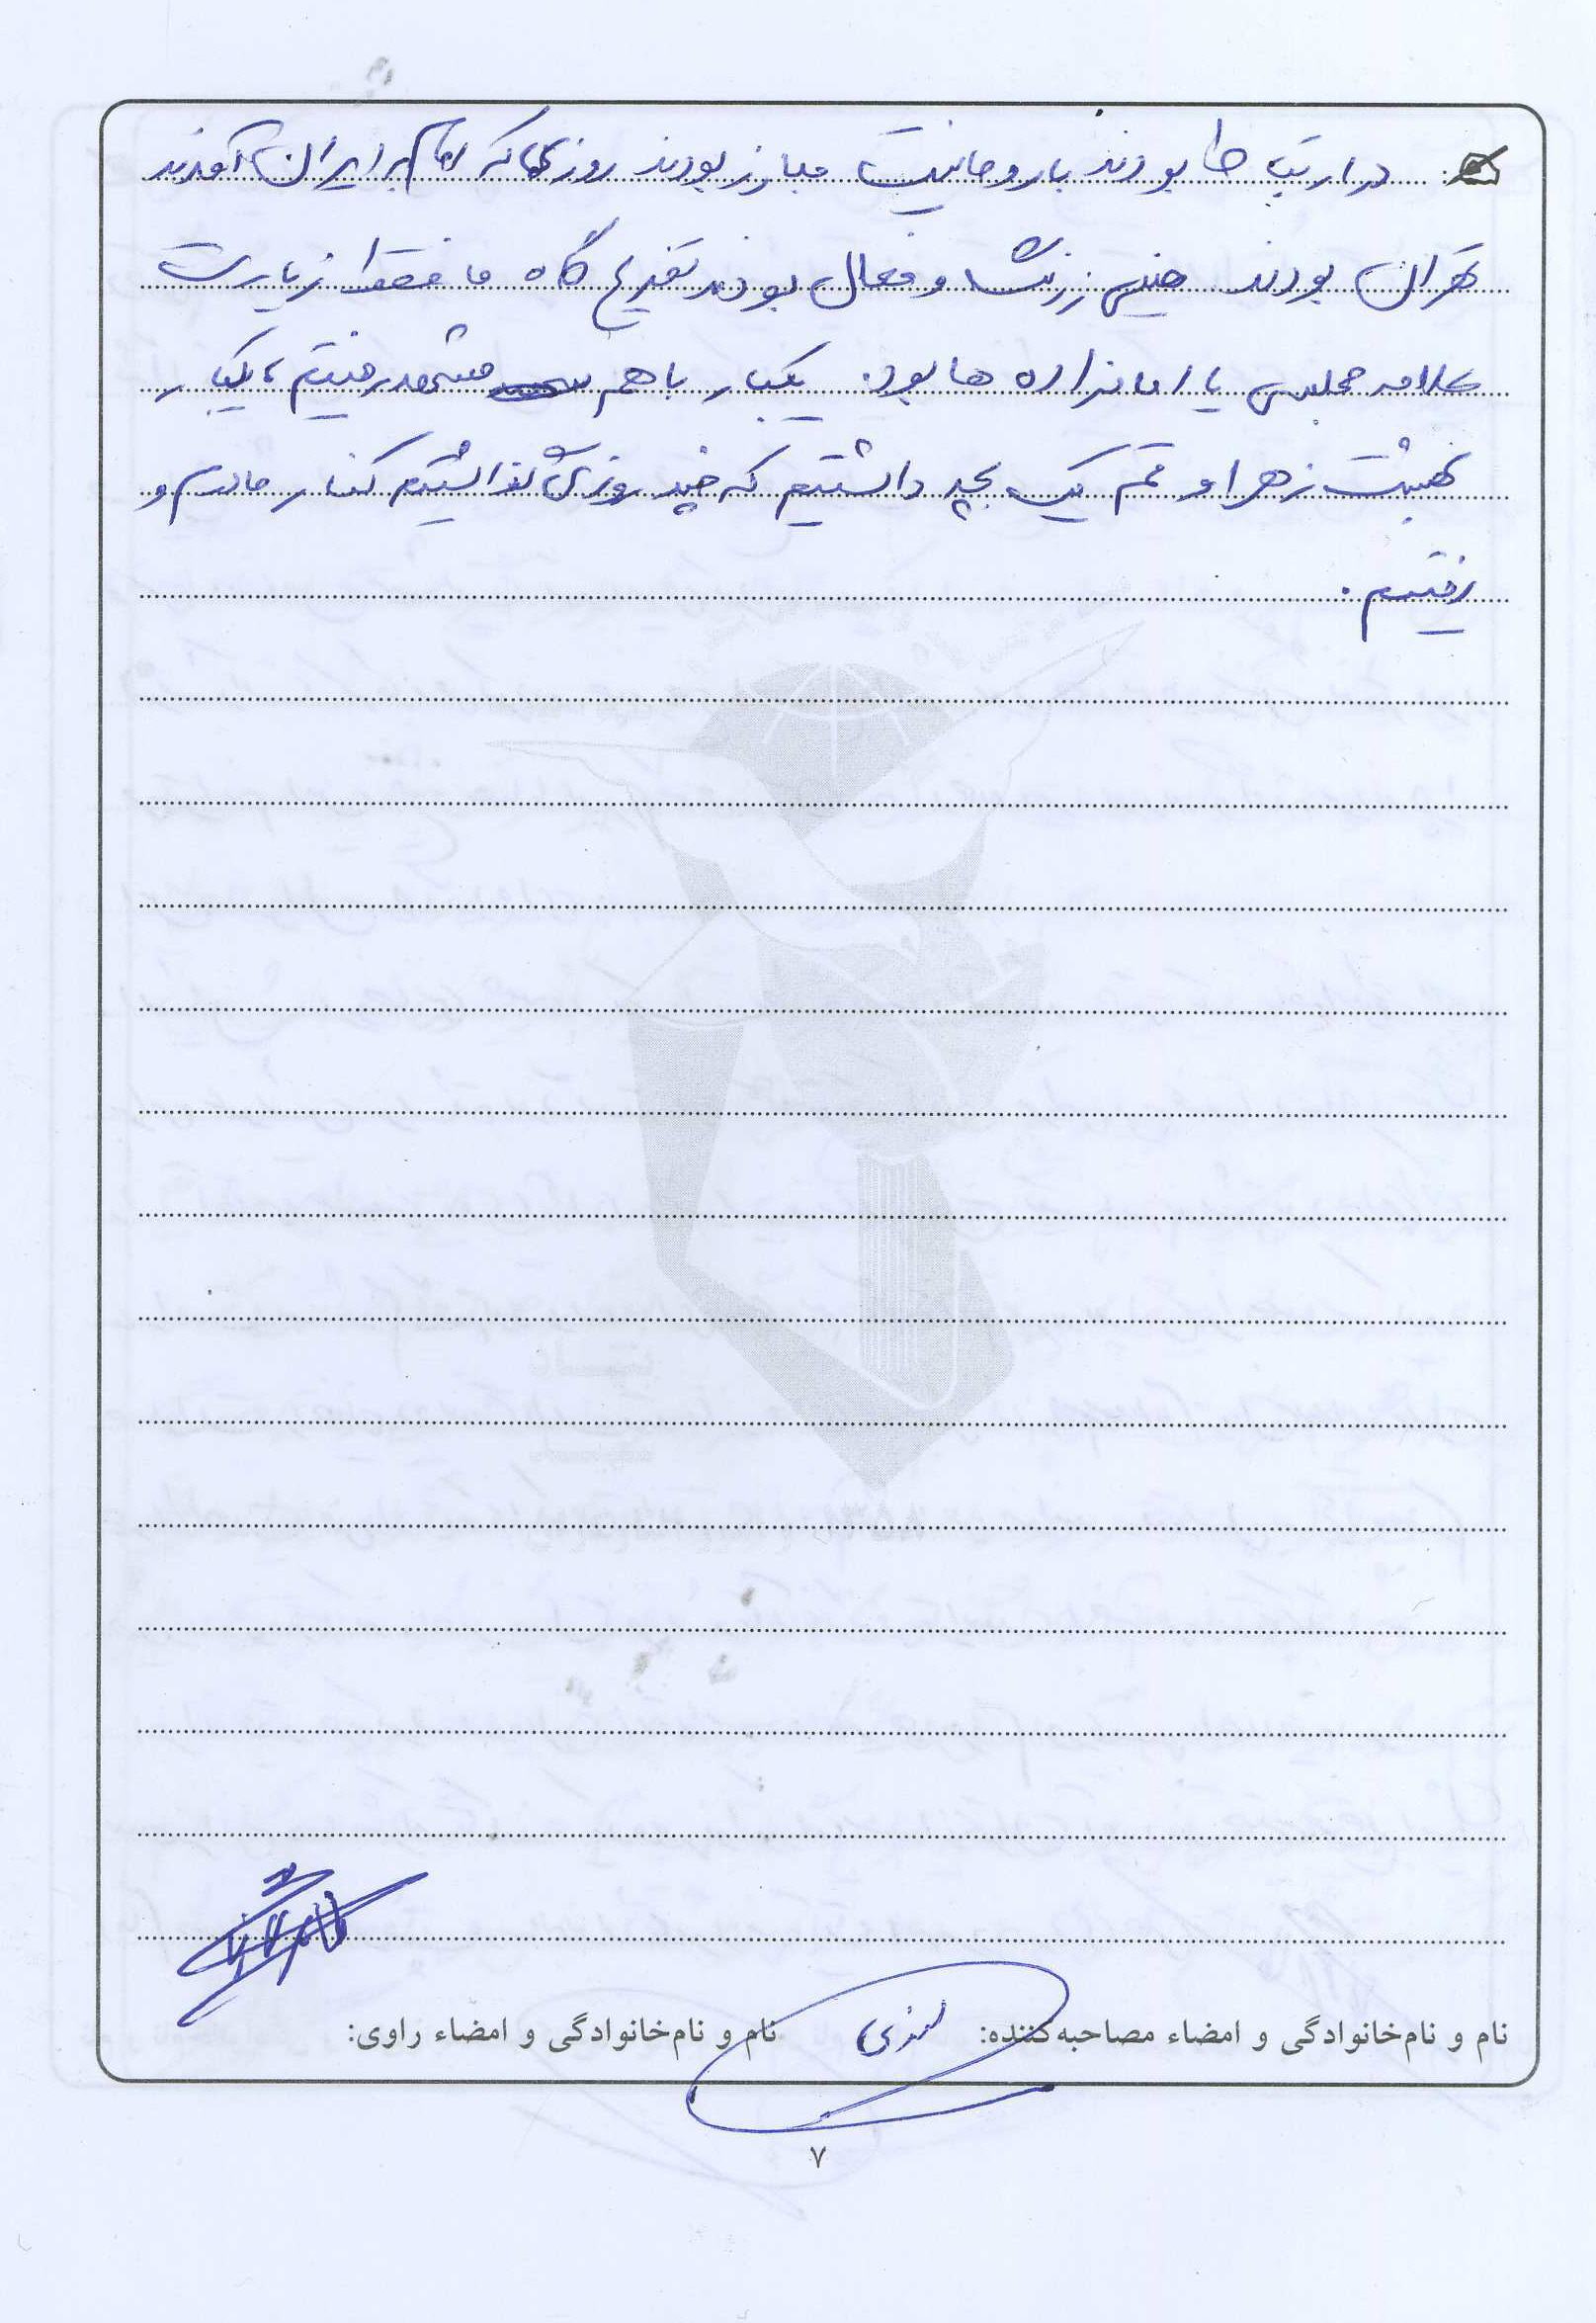 در ارتباط بودند با روحانیت مبارز بودند روزی که امام به ایران آمدند
تهران بودند خیلی زرنگ و فعال بودند تفریح گاه ما فقط زیارت
علامه مجلسی یا امامزاده ها بود. یکبار با هم مشهد رفتیم، یکبار
بهشت زهرا و قم یک بچه داشتیم که چند روزش گذاشتیم کنار مادرم و
رفتیم.
نام و نام‌خانوادگی و امضاء مصاحبه‌کننده: نام و نام‌خانوادگی و امضاء راوی:
۷